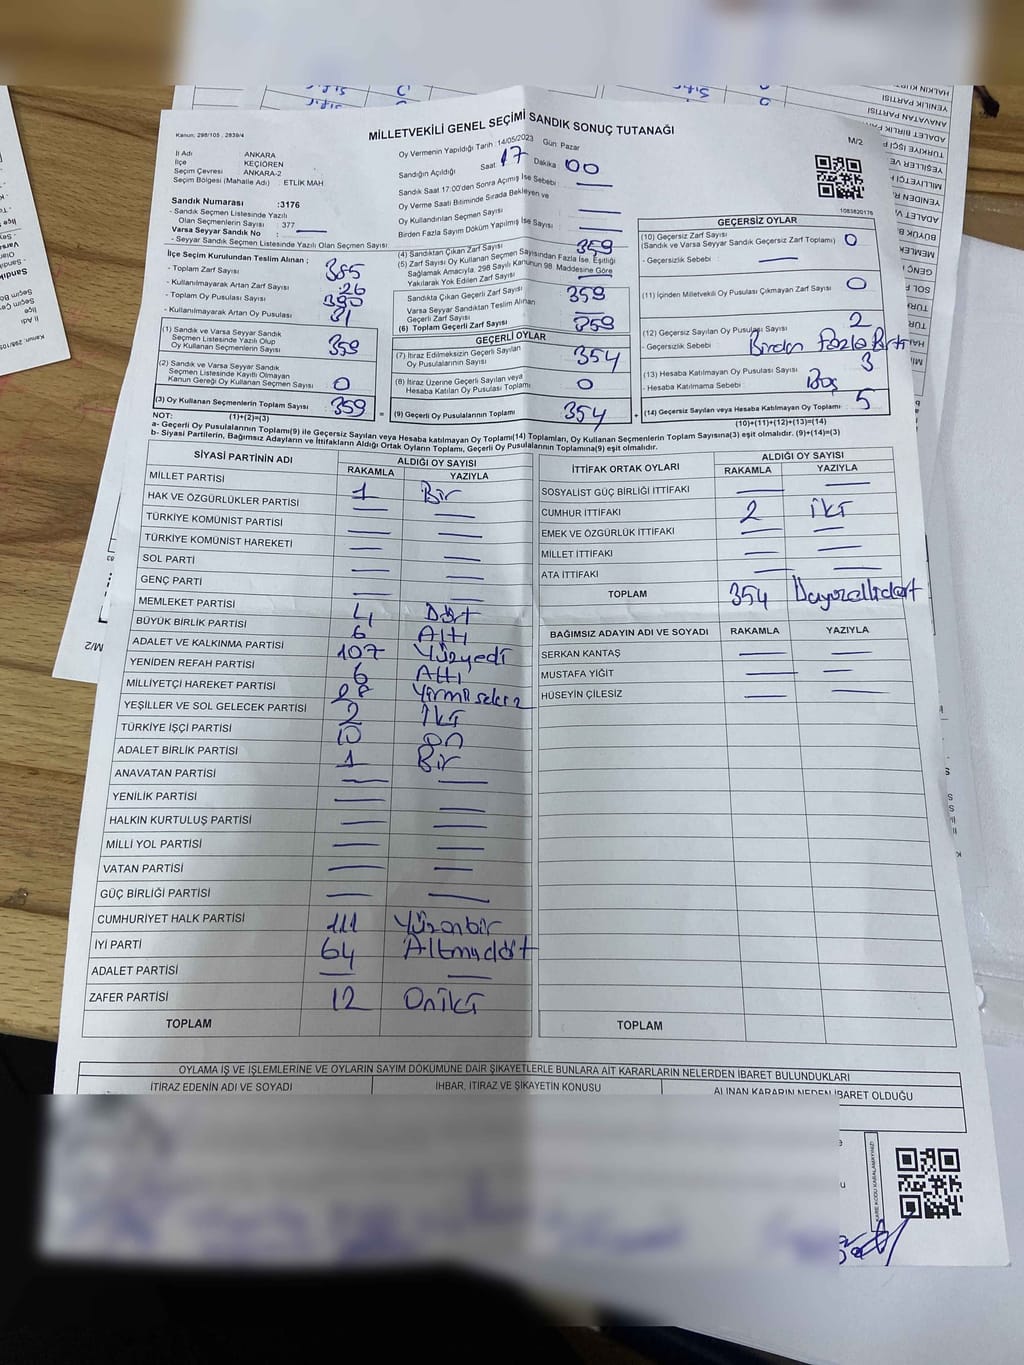 Kanun: 298/105 , 2839/4
MİLLETVEKİLİ GENEL SEÇİMİ SANDIK SONUÇ TUTANAĞI
M/2
İl Adı ANKARA
İlçe KEÇİÖREN
Seçim Çevresi ANKARA-2
Seçim Bölgesi (Mahalle Adı) : ETLİK MAH.
Oy Vermenin Yapıldığı Tarih : 14/05/2023 Gün: Pazar
Sandığın Açıldığı Saat 17 Dakika 00
Sandık Saat 17:00'den Sonra Açılmış İse Sebebi
Oy Verme Saati Bitiminde Sırada Bekleyen ve
Oy Kullandırılan Seçmen Sayısı
Birden Fazla Sayım Döküm Yapılmış İse Sayısı
1083820176
Sandık Numarası :3176
- Sandık Seçmen Listesinde Yazılı
Olan Seçmenlerin Sayısı : 377
Varsa Seyyar Sandık No :
- Seyyar Sandık Seçmen Listesinde Yazılı Olan Seçmen Sayısı:
İlçe Seçim Kurulundan Teslim Alınan ;
- Toplam Zarf Sayısı 385
- Kullanılmayarak Artan Zarf Sayısı 26
- Toplam Oy Pusulası Sayısı 390
- Kullanılmayarak Artan Oy Pusulası 31
(1) Sandık ve Varsa Seyyar Sandık
Seçmen Listesinde Yazılı Olup
Oy Kullanan Seçmenlerin Sayısı 359
(2) Sandık ve Varsa Seyyar Sandık
Seçmen Listesinde Kayıtlı Olmayan
Kanun Gereği Oy Kullanan Seçmen Sayısı 0
(3) Oy Kullanan Seçmenlerin Toplam Sayısı 359
(1)+(2)=(3)
(4) Sandıktan Çıkan Zarf Sayısı 359
(5) Zarf Sayısı Oy Kullanan Seçmen Sayısından Fazla İse, Eşitliği
Sağlamak Amacıyla, 298 Sayılı Kanunun 98. Maddesine Göre
Yakılarak Yok Edilen Zarf Sayısı
Sandıkta Çıkan Geçerli Zarf Sayısı 359
Varsa Seyyar Sandıktan Teslim Alınan
Geçerli Zarf Sayısı
(6) Toplam Geçerli Zarf Sayısı 359
GEÇERLİ OYLAR
(7) İtiraz Edilmeksizin Geçerli Sayılan
Oy Pusulalarının Sayısı 354
(8) İtiraz Üzerine Geçerli Sayılan veya
Hesaba Katılan Oy Pusulası Toplamı 0
= (9) Geçerli Oy Pusulalarının Toplamı 354
GEÇERSİZ OYLAR
(10) Geçersiz Zarf Sayısı
(Sandık ve Varsa Seyyar Sandık Geçersiz Zarf Toplamı) 0
- Geçersizlik Sebebi :
(11) İçinden Milletvekili Oy Pusulası Çıkmayan Zarf Sayısı 0
(12) Geçersiz Sayılan Oy Pusulası Sayısı 2
- Geçersizlik Sebebi : Birden Fazla Parti
(13) Hesaba Katılmayan Oy Pusulası Sayısı 3
- Hesaba Katılmama Sebebi : Boş
+ (14) Geçersiz Sayılan veya Hesaba Katılmayan Oy Toplamı : 5
(10)+(11)+(12)+(13)=(14)
NOT:
a- Geçerli Oy Pusulalarının Toplamı(9) ile Geçersiz Sayılan veya Hesaba katılmayan Oy Toplamı(14) Toplamları, Oy Kullanan Seçmenlerin Toplam Sayısına(3) eşit olmalıdır. (9)+(14)=(3)
b- Siyasi Partilerin, Bağımsız Adayların ve İttifakların Aldığı Ortak Oyların Toplamı, Geçerli Oy Pusulalarının Toplamına(9) eşit olmalıdır.
SİYASİ PARTİNİN ADI ALDIĞI OY SAYISI
RAKAMLA YAZIYLA
MİLLET PARTİSİ 1 Bir
HAK VE ÖZGÜRLÜKLER PARTİSİ
TÜRKİYE KOMÜNİST PARTİSİ
TÜRKİYE KOMÜNİST HAREKETİ
SOL PARTİ
GENÇ PARTİ
MEMLEKET PARTİSİ 4 Dört
BÜYÜK BİRLİK PARTİSİ 6 Altı
ADALET VE KALKINMA PARTİSİ 107 Yüzyedi
YENİDEN REFAH PARTİSİ 6 Altı
MİLLİYETÇİ HAREKET PARTİSİ 28 Yirmi sekiz
YEŞİLLER VE SOL GELECEK PARTİSİ 2 İki
TÜRKİYE İŞÇİ PARTİSİ 10 on
ADALET BİRLİK PARTİSİ 1 Bir
ANAVATAN PARTİSİ
YENİLİK PARTİSİ
HALKIN KURTULUŞ PARTİSİ
MİLLİ YOL PARTİSİ
VATAN PARTİSİ
GÜÇ BİRLİĞİ PARTİSİ
CUMHURİYET HALK PARTİSİ 111 Yüzonbir
İYİ PARTİ 64 Altmışdört
ADALET PARTİSİ
ZAFER PARTİSİ 12 Oniki
TOPLAM
İTTİFAK ORTAK OYLARI ALDIĞI OY SAYISI
RAKAMLA YAZIYLA
SOSYALİST GÜÇ BİRLİĞİ İTTİFAKI
CUMHUR İTTİFAKI 2 İki
EMEK VE ÖZGÜRLÜK İTTİFAKI
MİLLET İTTİFAKI
ATA İTTİFAKI
TOPLAM 354 Üçyüzellidört
BAĞIMSIZ ADAYIN ADI VE SOYADI RAKAMLA YAZIYLA
SERKAN KANTAŞ
MUSTAFA YİĞİT
HÜSEYİN ÇİLESİZ
TOPLAM
OYLAMA İŞ VE İŞLEMLERİNE VE OYLARIN SAYIM DÖKÜMÜNE DAİR ŞİKAYETLERLE BUNLARA AİT KARARLARIN NELERDEN İBARET BULUNDUKLARI
İTİRAZ EDENİN ADI VE SOYADI İHBAR, İTİRAZ VE ŞİKAYETİN KONUSU ALINAN KARARIN NEDEN İBARET OLDUĞU
KARE KODU KARALAMAYINIZ!